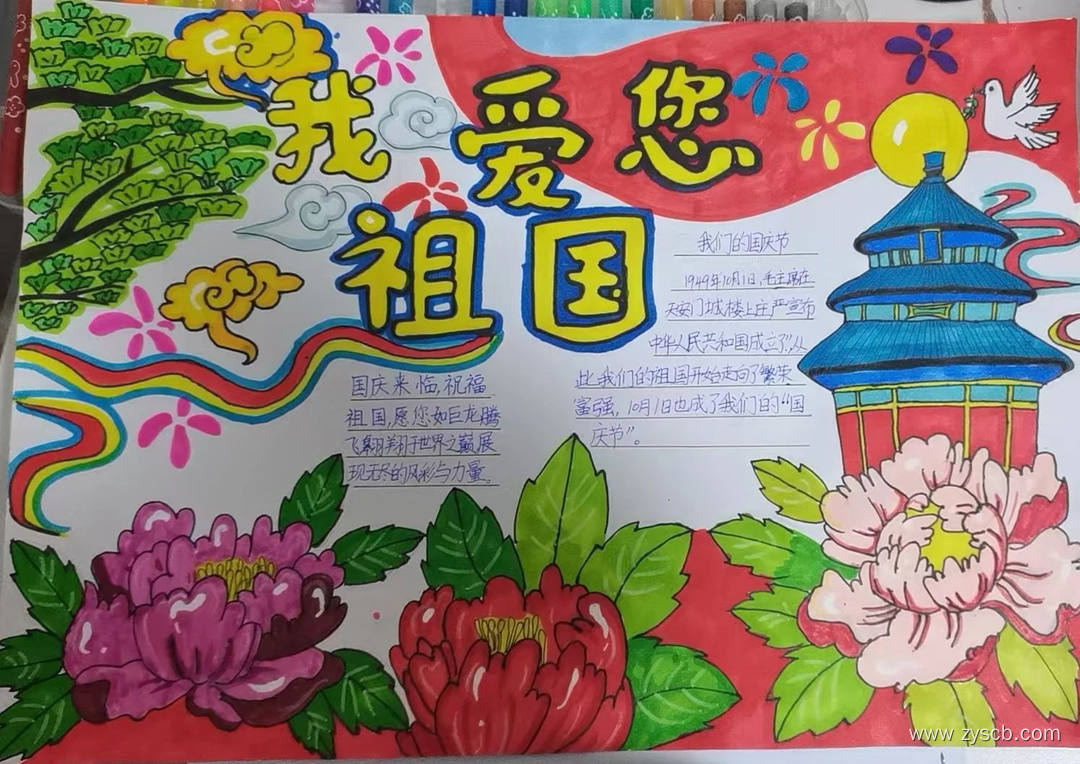 我爱您
祖国
我们的国庆节
1949年10月1日,毛主席在
天安门城楼上庄严宣布
中华人民共和国成立了",从
此我们的祖国开始走向了繁荣
富强,10月1日也成了我们的"国
庆节"。
国庆来临,祝福
祖国,愿您如巨龙腾
飞,翱翔于世界之巅,展
现无尽的风彩与力量。
www.zyscb.com